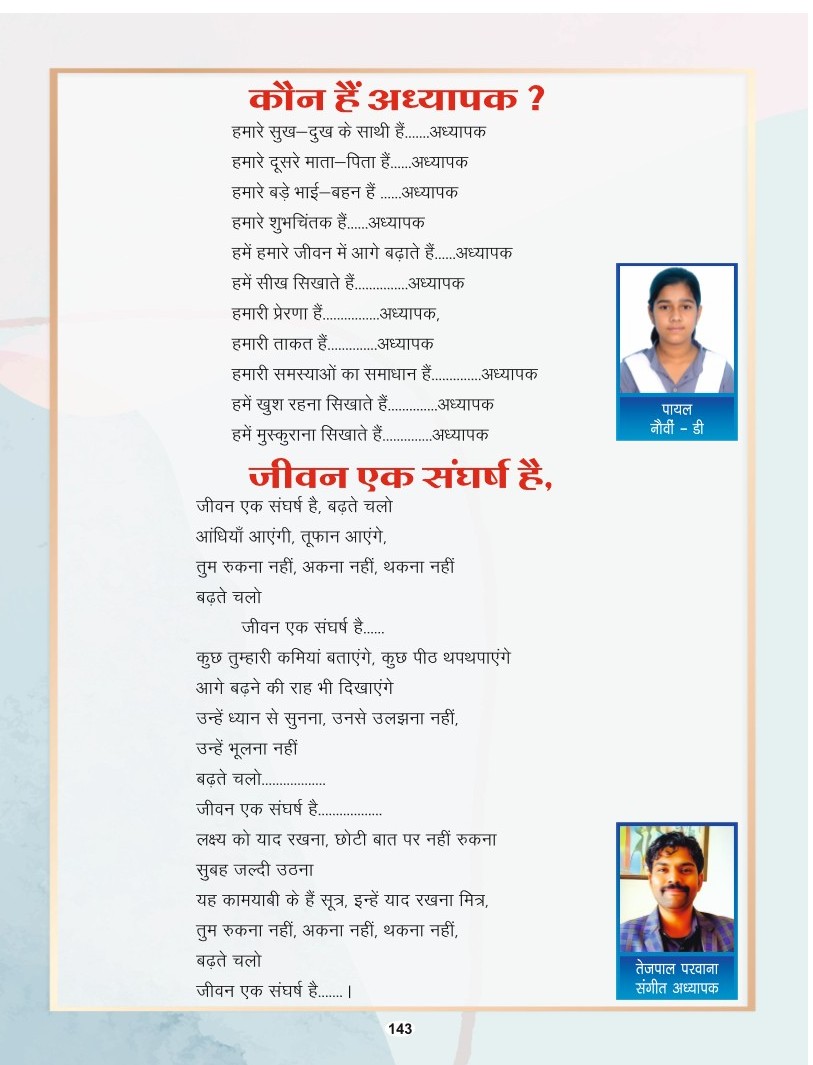 कौन हैं अध्यापक ?
हमारे सुख–दुख के साथी हैं.......अध्यापक
हमारे दूसरे माता–पिता हैं......अध्यापक
हमारे बड़े भाई–बहन हैं ......अध्यापक
हमारे शुभचिंतक हैं......अध्यापक
हमें हमारे जीवन में आगे बढ़ाते हैं......अध्यापक
हमें सीख सिखाते हैं...............अध्यापक
हमारी प्रेरणा हैं................अध्यापक,
हमारी ताकत हैं..............अध्यापक
हमारी समस्याओं का समाधान हैं..............अध्यापक
हमें खुश रहना सिखाते हैं..............अध्यापक
हमें मुस्कुराना सिखाते हैं..............अध्यापक
पायल
नौवीं - डी
जीवन एक संघर्ष है,
जीवन एक संघर्ष है, बढ़ते चलो
आंधियाँ आएंगी, तूफान आएंगे,
तुम रुकना नहीं, अकना नहीं, थकना नहीं
बढ़ते चलो
जीवन एक संघर्ष है......
कुछ तुम्हारी कमियां बताएंगे, कुछ पीठ थपथपाएंगे
आगे बढ़ने की राह भी दिखाएंगे
उन्हें ध्यान से सुनना, उनसे उलझना नहीं,
उन्हें भूलना नहीं
बढ़ते चलो..................
जीवन एक संघर्ष है..................
लक्ष्य को याद रखना, छोटी बात पर नहीं रुकना
सुबह जल्दी उठना
यह कामयाबी के हैं सूत्र, इन्हें याद रखना मित्र,
तुम रुकना नहीं, अकना नहीं, थकना नहीं,
बढ़ते चलो
जीवन एक संघर्ष है....... |
तेजपाल परवाना
संगीत अध्यापक
143